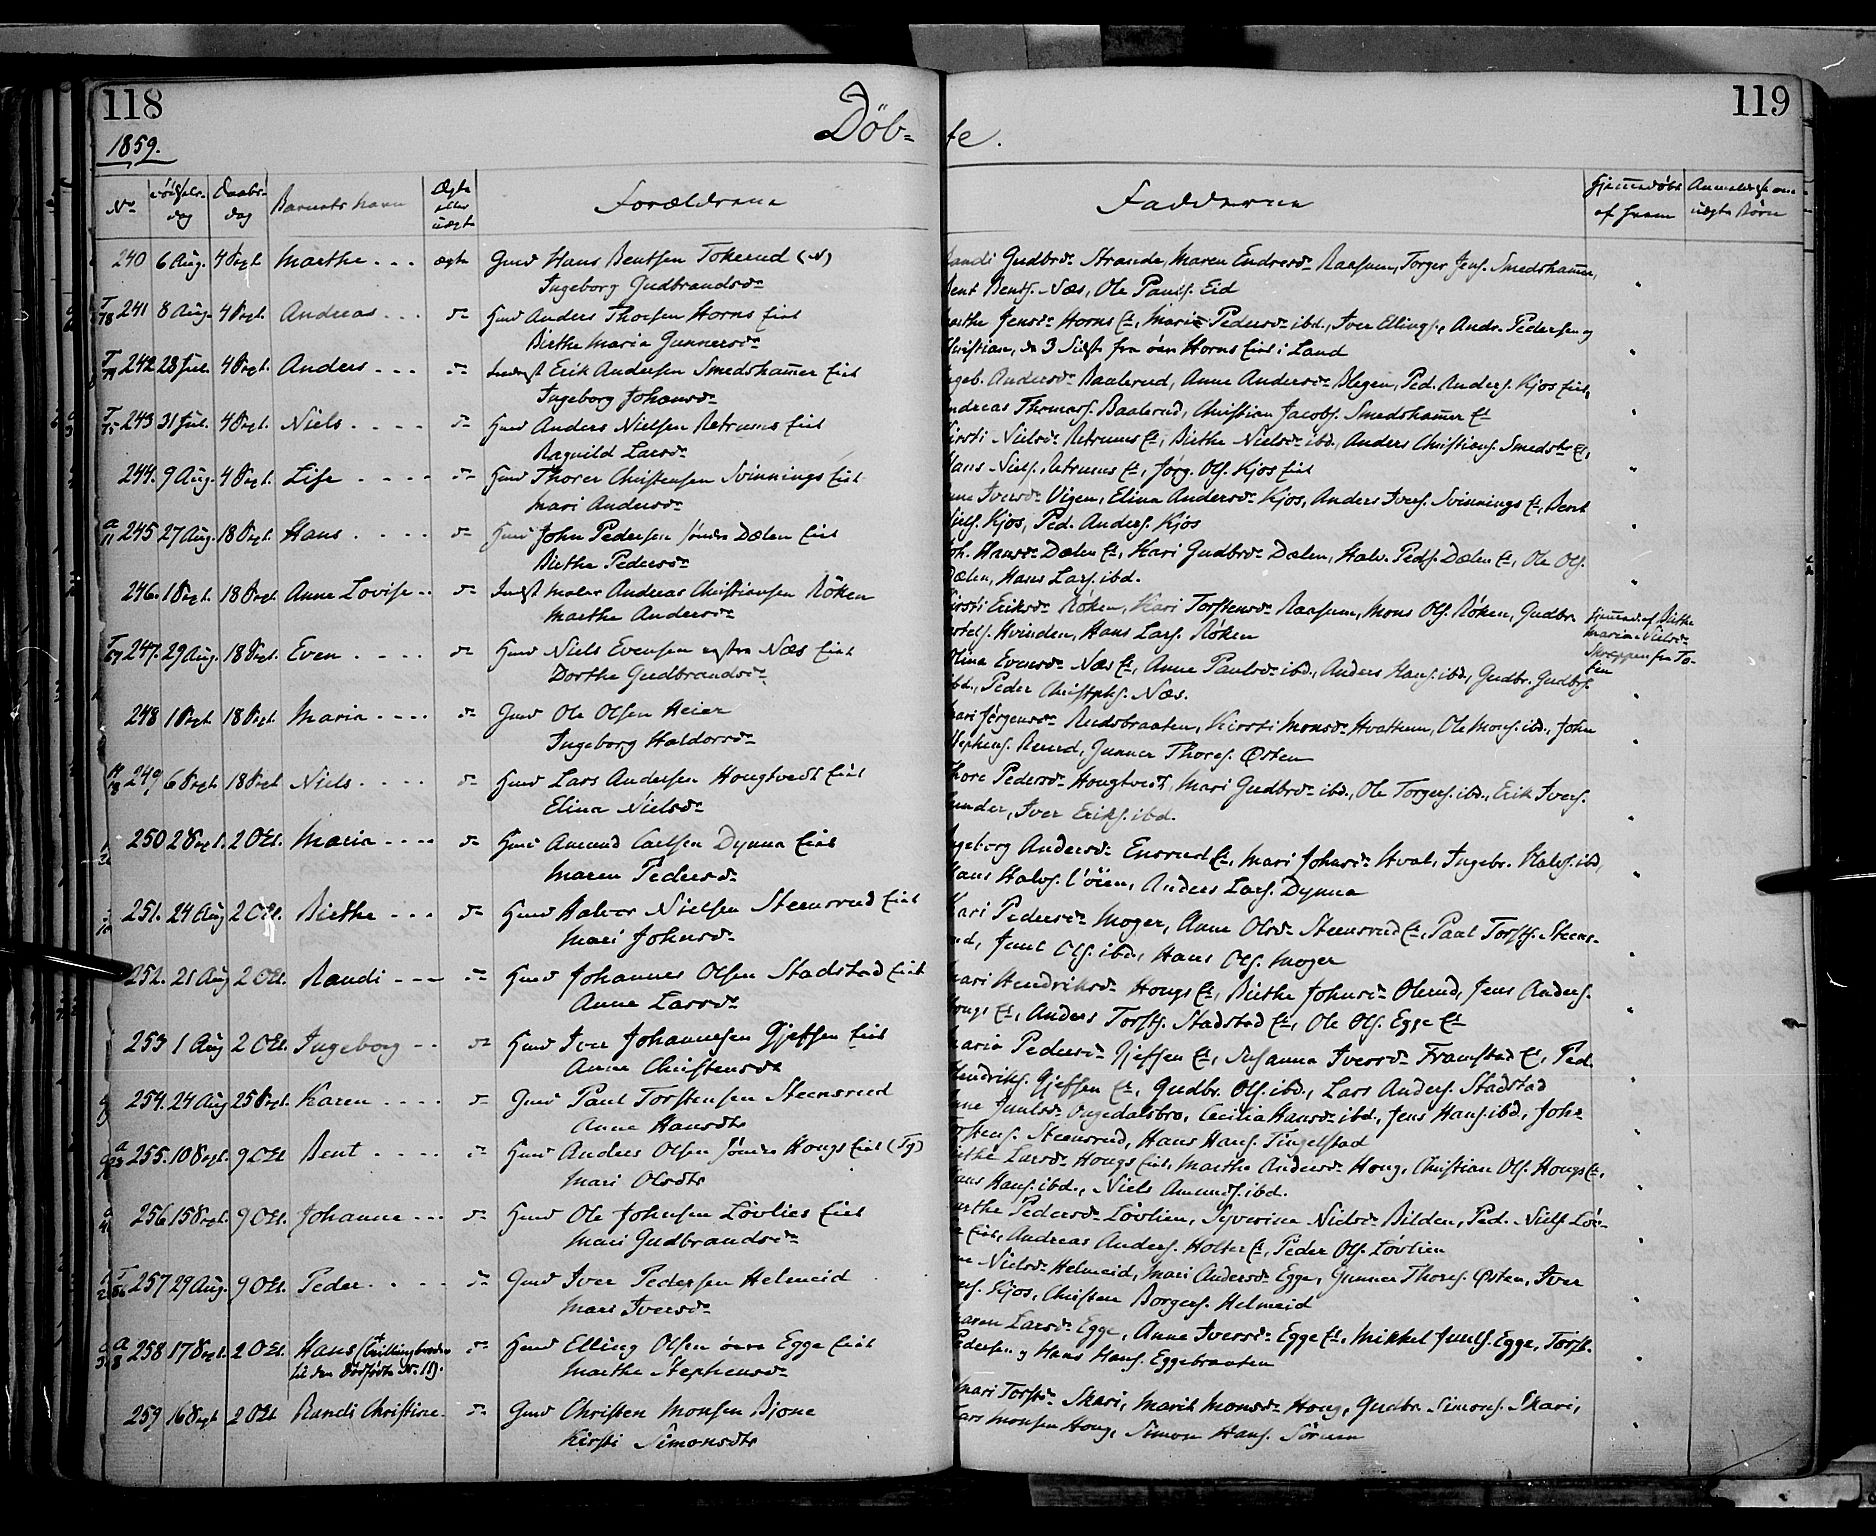 118
119
1859.
Döb-te.
No Fødsels-dag Daabs-dag Barnets Navn Ægte eller uægte Forældrene Fadderne Hjemmedøbt af hvem Anmeldelse om uægte Børn
240 6 Aug. 4 Sept. Marthe ægte Gmd Hans Bentsen Tokerud (N)
Ingeborg Gudbrandsd.
Gudbrd. Strande, Maren Endresd. Raasum, Torger Jens. Smedshamer,
Bent Bents. Næs, Ole Pauls. Eid
241 8 Aug. 4 Sept. Andreas d. Hmd Anders Thorsen Horns Eiet
Birthe Maria Gunnersd.
Jensd. Horns Et, Marie Pedersd. ibd., Iver Ellings., Andr. Pedersen og
Christian, de 3 Sidste fra øvre Horns Eiet i Land
242 28 Jul. 4 Sept. Anders d. Inderst Erik Andersen Smedshamer Eiet
Ingeborg Johansd.
Andersd. Baalerud, Anne Andersd. Blegen, Ped. Anders. Kjos Eiet,
Andreas Thomas. Baalerud, Christian Jacobs. Smedshamer Et
243 31 Jul. 4 Sept. Niels d. Hmd Anders Nielsen Retrums Eiet
Ragnild Larsd.
Kirsti Nielsd. Retrums Et, Birthe Nielsd. ibd., Anders Christians. Smedsh. Et,
Hans Niels. Retrums Et, Jørg. Ols. Kjos Eiet
244. 9 Aug. 4 Sept. Lise d. Hmd Thorer Christensen Svinnings Eiet
Mari Andersd.
Iversd. Vigen, Elina Andersd. Kjos, Anders Ivers. Svinnings Et, Bent
Niels. Kjos, Ped. Anders. Kjos
245 27 Aug. 18 Sept. Hans d. Hmd John Pedersen søndre Dælen Eiet
Birthe Pedersd.
Joh. Hansd. Dælen Et, Kari Gudbrd. Dælen, Halv. Peds. Dælen Et, Ole Ols.
Dælen, Hans Lars. ibd.
246. 1 Sept. 18 Sept. Anne Lovise d. Inderst maler Andreas Christiansen Røken
Marthe Andersd.
Kirsti Eriksd. Røken, Kari Torstensd. Raasum, Mons Ols. Røken, Gudbr.
Hvinden, Hans Lars. Røken
Hjemmed. af Birthe
Maria Nielsd.
fra To-
ten
247. 29 Aug. 18 Sept. Even d. Hmd Niels Evensen Næs Eiet
Dorthe Gudbrandsd.
Olina Evensd. Næs Et, Anne Paulsd. ibd., Anders Hans. ibd., Gudbr. Gudbrs.
ibd., Peder Christphs. Næs.
248 1 Sept. 18 Sept. Maria d. Gmd Ole Olsen Heier
Ingeborg Haldorsd.
Mari Jørgensd. Rudsbraaten, Kirsti Monsd. Hvattum, Ole Mons. ibd., John
Stephens. Rerud, Gunner Thores. Østen
249 6 Sept. 18 Sept. Niels d. Hmd Lars Andersen Hougtvedt Eiet
Elina Nielsd.
Thore Pedersd. Hougtvedt, Mari Gudbrd. ibd., Ole Torgers. ibd., Erik Ivers.
Iver Eriks. ibd.
250 2 Sept. 2 Oct. Maria d. Hmd Amund Carlsen Dynna Eiet
Maren Pedersd.
Ingeborg Andersd. Ensrud Et, Mari Johnsd. Hval, Ingebr. Halvs. ibd,
Hans Halvs. Løien, Anders Lars. Dynna
251. 24 Aug 2 Oct. Birthe d. Hmd Halvor Nielsen Steensrud Eiet
Mari Johnsd.
Kari Pedersd. Moger, Anne Olsd. Steensrud Et, Paal Torsts. Steens-
rud, Juul Ols. ibd., Hans Ols. Moger
252. 21 Aug 2 Oct. Randi d. Hmd Johannes Olsen Stadstad Eiet
Anne Larsd.
Mari Hendriksd. Hougs Et, Birthe Johnsd. Olerud, Jens Anders.
Hougs Et, Anders Torsts. Stadstad Et, Ole Ols. Egge Et
253 1 Aug 2 Oct. Ingeborg d. Hmd Iver Johannesen Gjefsen Eiet
Anne Christensd.
Maria Pedersd. Gjefsen Et, Susanna Iversd. Framstad Et, Ped.
Hendriks. Gjefsen Et, Gudbr. Ols. ibd., Lars Anders. Stadstad
254. 24 Aug 25 Sept. Karen d. Gmd Paul Torstensen Steensrud
Anne Hansdtr
Anne Juulsd. Ongedalsbro, Cecilia Hansd. ibd., Jens Hans. ibd., Joh.
Torstens. Steensrud, Hans Hans. Tingelstad
255. 10 Sept. 9 Oct Bent d. Hmd Anders Olsen søndre Hougs Eiet (Tg)
Mari Olsdtr
Birthe Larsd. Hougs Eiet, Marthe Andersd. Houg, Christian Ols. Hougs Et,
Hans Hans. ibd., Niels Amunds. ibd.
256 15 Sept. 9 Oct. Johanne d. Hmd Ole Johnsen Løvlies Eiet
Mari Gudbrandsd.
Marthe Pedersd. Løvlien, Syverine Nielsd. Bilden, Ped. Niels. Løv-
lie Eiet, Andreas Anders. Holter Et, Peder Ols. Løvlien
257 29 Aug. 9 Oct. Peder d. Gmd Iver Pedersen Helmeid
Mari Iversd.
Nielsd. Helmeid, Mari Andersd. Egge, Gunner Thores. Østen, Iver
Kjos, Christen Borgers. Helmeid
258 17 Sept. 2 Oct. Hans (Tvillingbroder til den Dødfødte N. 11). d. Hmd Elling Olsen øvre Egge Eiet
Marthe Stephensd.
Maren Larsd. Egge, Anne Iversd. Egge Et, Mikkel Juuls. Egge, Torst.
Pedersen og Hans Hans. Eggebraaten
259 16 Sept 2 Oct Randi Christine d. Gmd Christen Monsen Bjone
Kirsti Simonsdtr
Mari Torstd. Skari, Marit Monsd. Houg, Gudbr. Simons. Skari,
Lars Monsen Houg, Simon Hans. Sørum